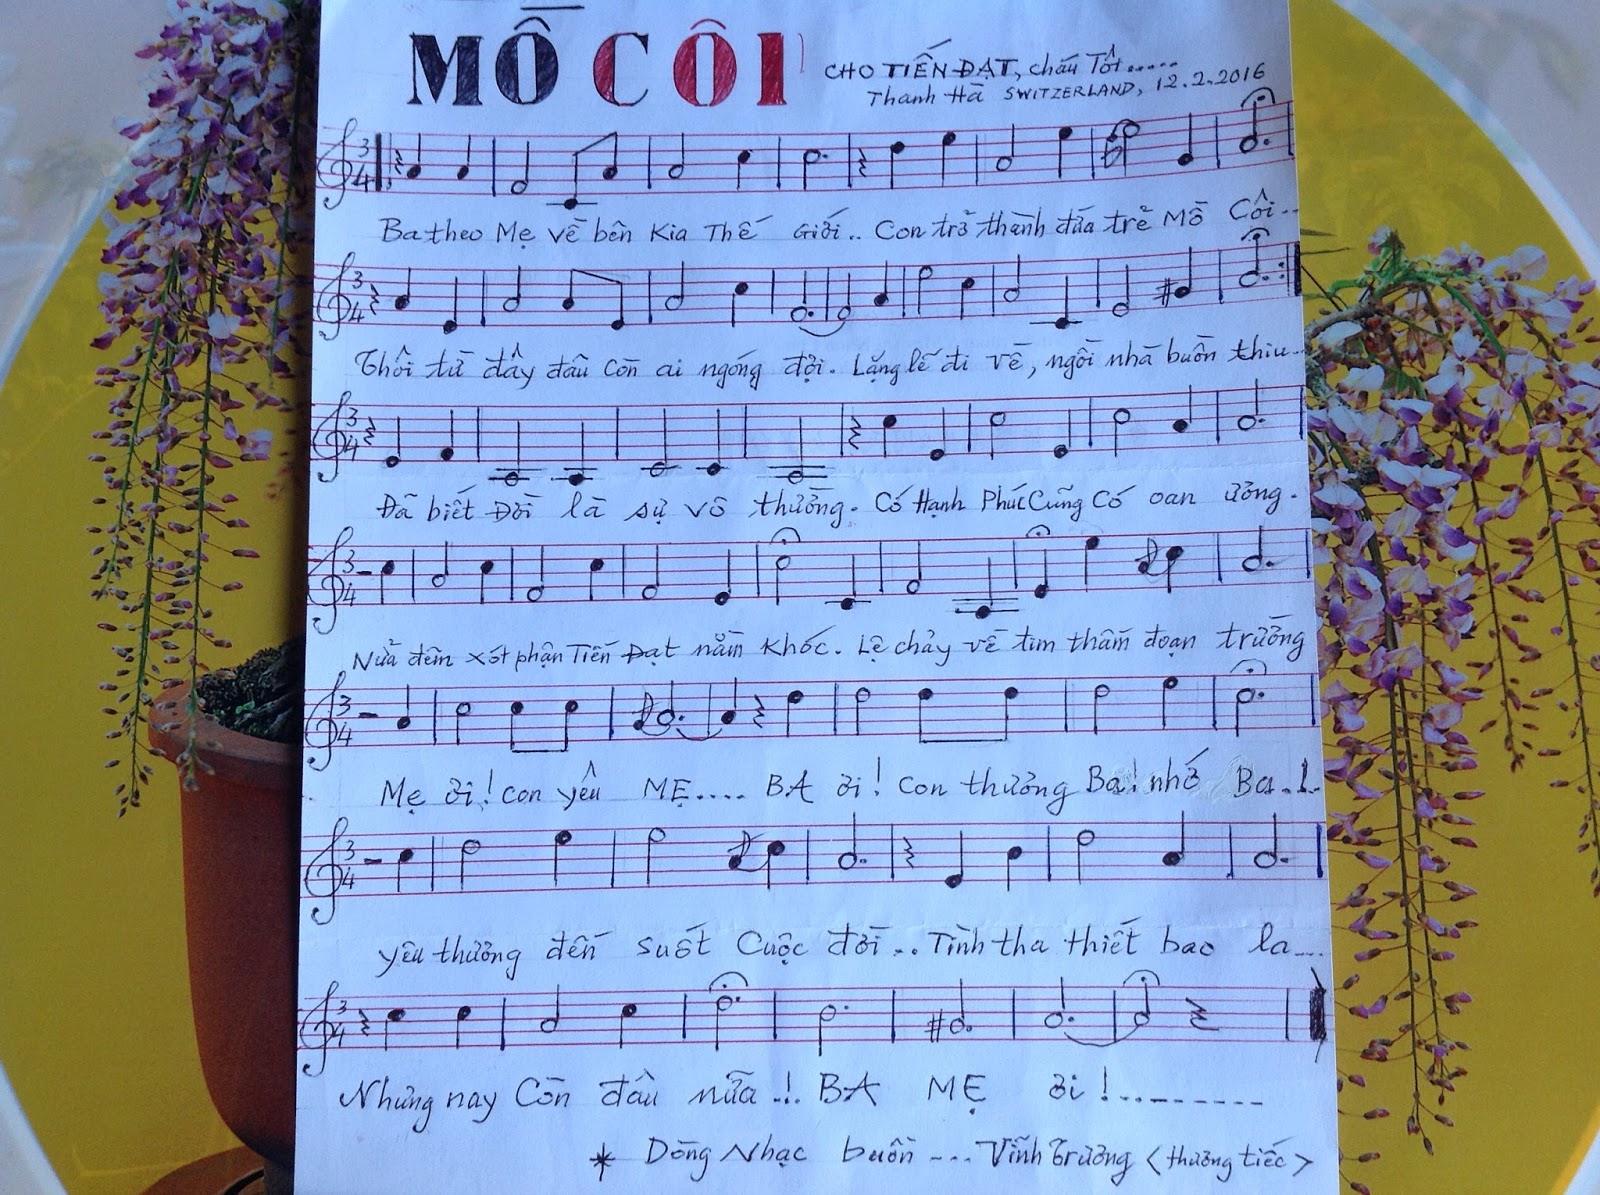 MỒ CÔI
CHO TIẾN ĐẠT, cháu Tốt.....
Thanh Hà SWITZERLAND, 12.2.2016
3 4
Ba theo Mẹ về bên Kia Thế Giới.. Con trở thành đứa trẻ Mồ Côi..
3 4
Thôi từ đây đâu Còn ai ngóng đợi. Lặng lẽ đi về, ngôi nhà buồn thiu...
3 4
Đã biết Đời là sự vô thường. Có Hạnh Phúc Cũng Có oan ương.
3 4
Nửa đêm xót phận Tiến Đạt nằm Khóc. Lệ chảy về tim thấm đoạn trường
3 4
Mẹ ơi! con yêu MẸ.... BA ơi! Con thương Ba! nhớ Ba..!..
3 4
yêu thương đến suốt Cuộc đời... Tình tha thiết bao la...
3 4
Nhưng nay Còn đâu nữa..!. BA MẸ ơi!..--------
* Dòng Nhạc buồn --.. Vĩnh Trường <thương tiếc>